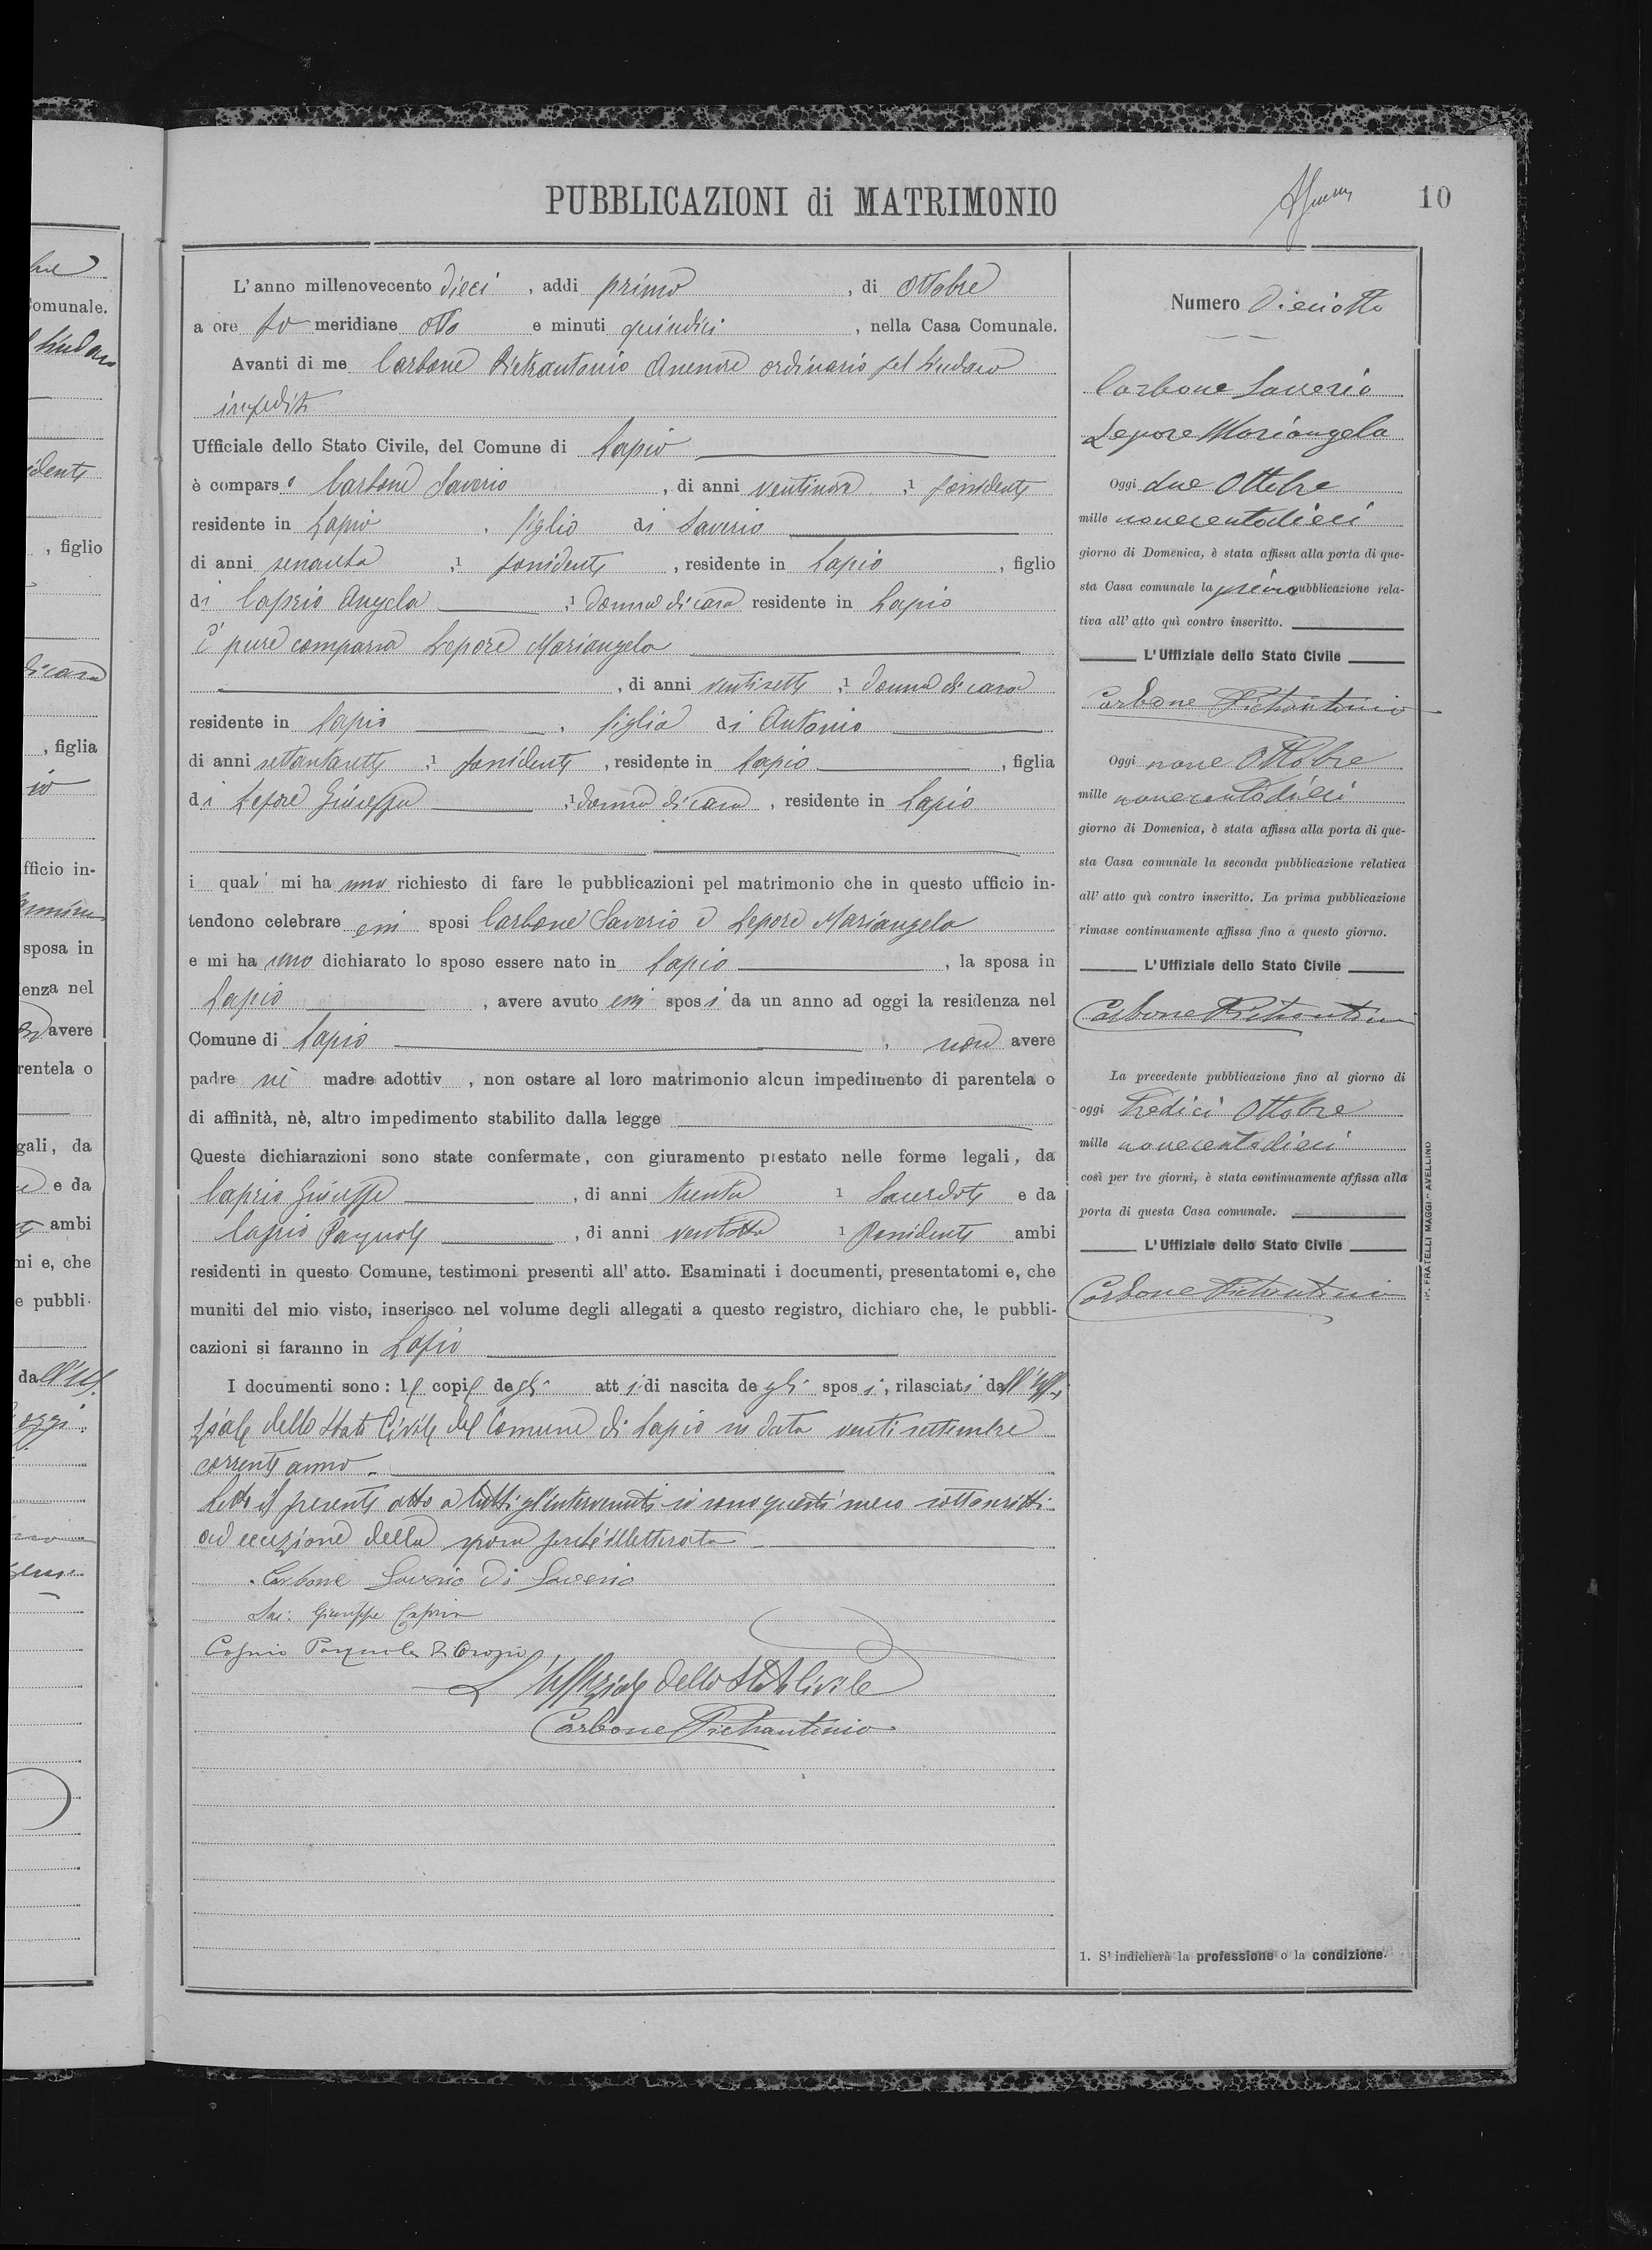 PUBBLICAZIONI di MATRIMONIO
10
L'anno millenovecento dieci, addi primo, di Ottobre
a ore po meridiane otto e minuti quindici, nella Casa Comunale.
Avanti di me Carbone Pietrantonio Assessore ordinario pel Sindaco
impedito
Ufficiale dello Stato Civile, del Comune di Lapio
è comparso Carbone Saverio, di anni ventinove, 1 possidente
residente in Lapio, figlio di Saverio
di anni sessanta, 1 possidente, residente in Lapio, figlio
di Caprio Angela, 1 donna di casa residente in Lapio
È pure comparsa Lepore Mariangela
, di anni ventisette, 1 donna di casa
residente in Lapio, figlia di Antonio
di anni settantasette, 1 possidente, residente in Lapio, figlia
di Lepore Giuseppa, 1 donna di casa, residente in Lapio
i quali mi hanno richiesto di fare le pubblicazioni pel matrimonio che in questo ufficio in-
tendono celebrare essi sposi Carbone Saverio e Lepore Mariangela
e mi hanno dichiarato lo sposo essere nato in Lapio, la sposa in
Lapio, avere avuto essi sposi da un anno ad oggi la residenza nel
Comune di Lapio, non avere
padre nè madre adottiv, non ostare al loro matrimonio alcun impedimento di parentela o
di affinità, nè, altro impedimento stabilito dalla legge
Queste dichiarazioni sono state confermate, con giuramento prestato nelle forme legali, da
Caprio Giuseppe, di anni trenta 1 Sacerdote e da
Caprio Pasquale, di anni ventotto 1 Possidente ambi
residenti in questo Comune, testimoni presenti all'atto. Esaminati i documenti, presentatomi e, che
muniti del mio visto, inserisco nel volume degli allegati a questo registro, dichiaro che, le pubbli-
cazioni si faranno in Lapio
I documenti sono: le copie degli atti di nascita degli sposi, rilasciati dall'Uffi
ziale dello Stato Civile del Comune di Lapio in data venti settembre
corrente anno.
Letto il presente atto a tutti gl'intervenuti si sono questi meco sottoscritti
ad eccezione della sposa perchè illetterata
Carbone Saverio di Saverio
Sac: Giuseppe Caprio
Caprio Pasquale di
L'Uffiziale dello Stato Civile
Carbone Pietrantonio
Numero Dieciotto
Carbone Saverio
Lepore Mariangela
Oggi due Ottobre
mille novecentodieci
giorno di Domenica, è stata affissa alla porta di que-
sta Casa comunale la prima pubblicazione rela-
tiva all'atto quì contro inscritto.
L'Uffiziale dello Stato Civile
Carbone Pietrantonio
Oggi nove Ottobre
mille novecentodieci
giorno di Domenica, è stata affissa alla porta di que-
sta Casa comunale la seconda pubblicazione relativa
all'atto quì contro inscritto. La prima pubblicazione
rimase continuamente affissa fino a questo giorno.
L'Uffiziale dello Stato Civile
Carbone Pietrantonio
La precedente pubblicazione fino al giorno di
oggi Tredici Ottobre
mille novecentodieci
così per tre giorni, è stata continuamente affissa alla
porta di questa Casa comunale.
L'Uffiziale dello Stato Civile
Carbone Pietrantonio
1. S'indicherà la professione o la condizione.
FRATELLI MAGGI - AVELLINO
omunale.
, figlio
, figlia
fficio in-
sposa in
enza nel
avere
rentela o
gali, da
e da
ambi
mi e, che
e pubbli-
dall'Uff
oggi